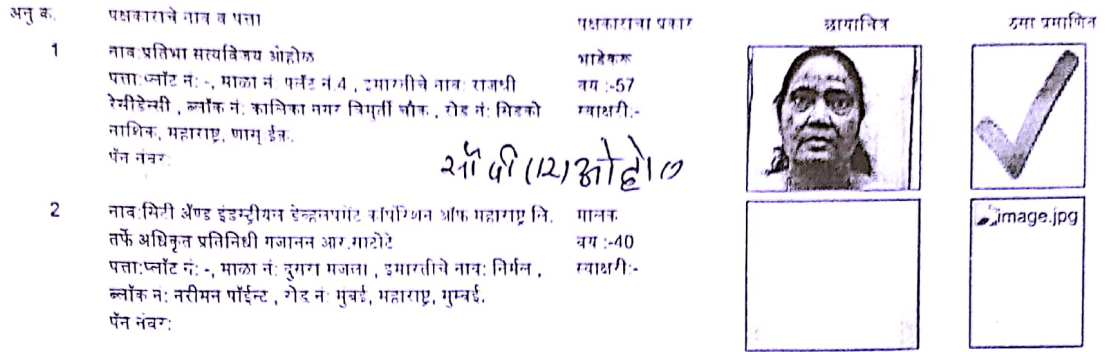 अनु क्र. पक्षकाराचे नाव व पत्ता पक्षकाराचा प्रकार छायाचित्र ठसा प्रमाणित
1 नाव:प्रतिभा सत्यविजय ओहोळ भाडेकरू
पत्ता:प्लॉट नं: -, माळा नं: फ्लॅट नं.4 , इमारतीचे नाव: राजश्री वय :-57
रेसीडेन्सी , ब्लॉक नं: कालिका नगर त्रिमुर्ती चौक , रोड नं: सिडको स्वाक्षरी:-
नाशिक, महाराष्ट्र, णास् ईक.
पॅन नंबर:
ओहोळ
2 नाव:सिटी अ‍ॅण्ड इंडस्ट्रीयल डेव्हलपमेंट कॉर्पोरेशन ऑफ महाराष्ट्र लि. मालक
तर्फे अधिकृत प्रतिनिधी गजानन आर.साटोटे वय :-40
पत्ता:प्लॉट नं: -, माळा नं: दुसरा मजला , इमारतीचे नाव: निर्मल , स्वाक्षरी:-
ब्लॉक नं: नरीमन पॉईन्ट , रोड नं: मुंबई, महाराष्ट्र, मुम्बई.
पॅन नंबर:
image.jpg